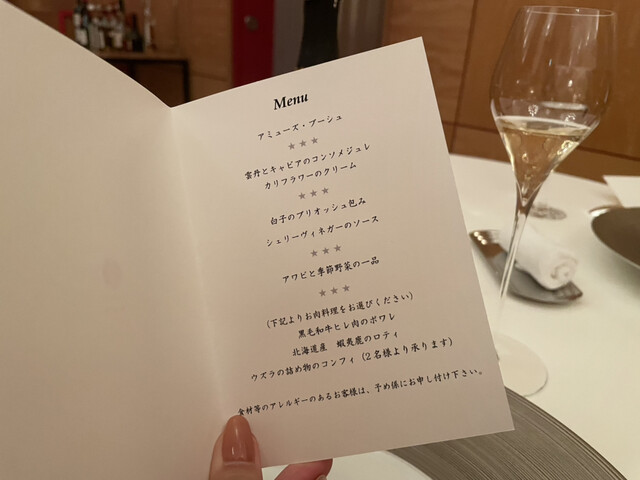 Menu
アミューズ・ブーシュ
★ ★ ★
雲丹とキャビアのコンソメジュレ
カリフラワーのクリーム
★ ★ ★
白子のブリオッシュ包み
シェリーヴィネガーのソース
★ ★ ★
アワビと季節野菜の一品
★ ★ ★
(下記よりお肉料理をお選びください)
黒毛和牛ヒレ肉のポワレ
北海道産 蝦夷鹿のロティ
ウズラの詰め物のコンフィ (2名様より承ります)
食材等のアレルギーのあるお客様は、予め係にお申し付け下さい。